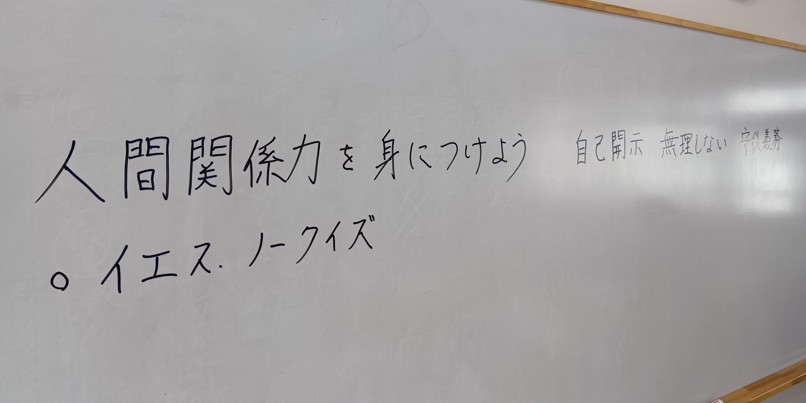 人間関係力を身につけよう 自己開示 無理しない 守秘義務
○ イエス.ノークイズ